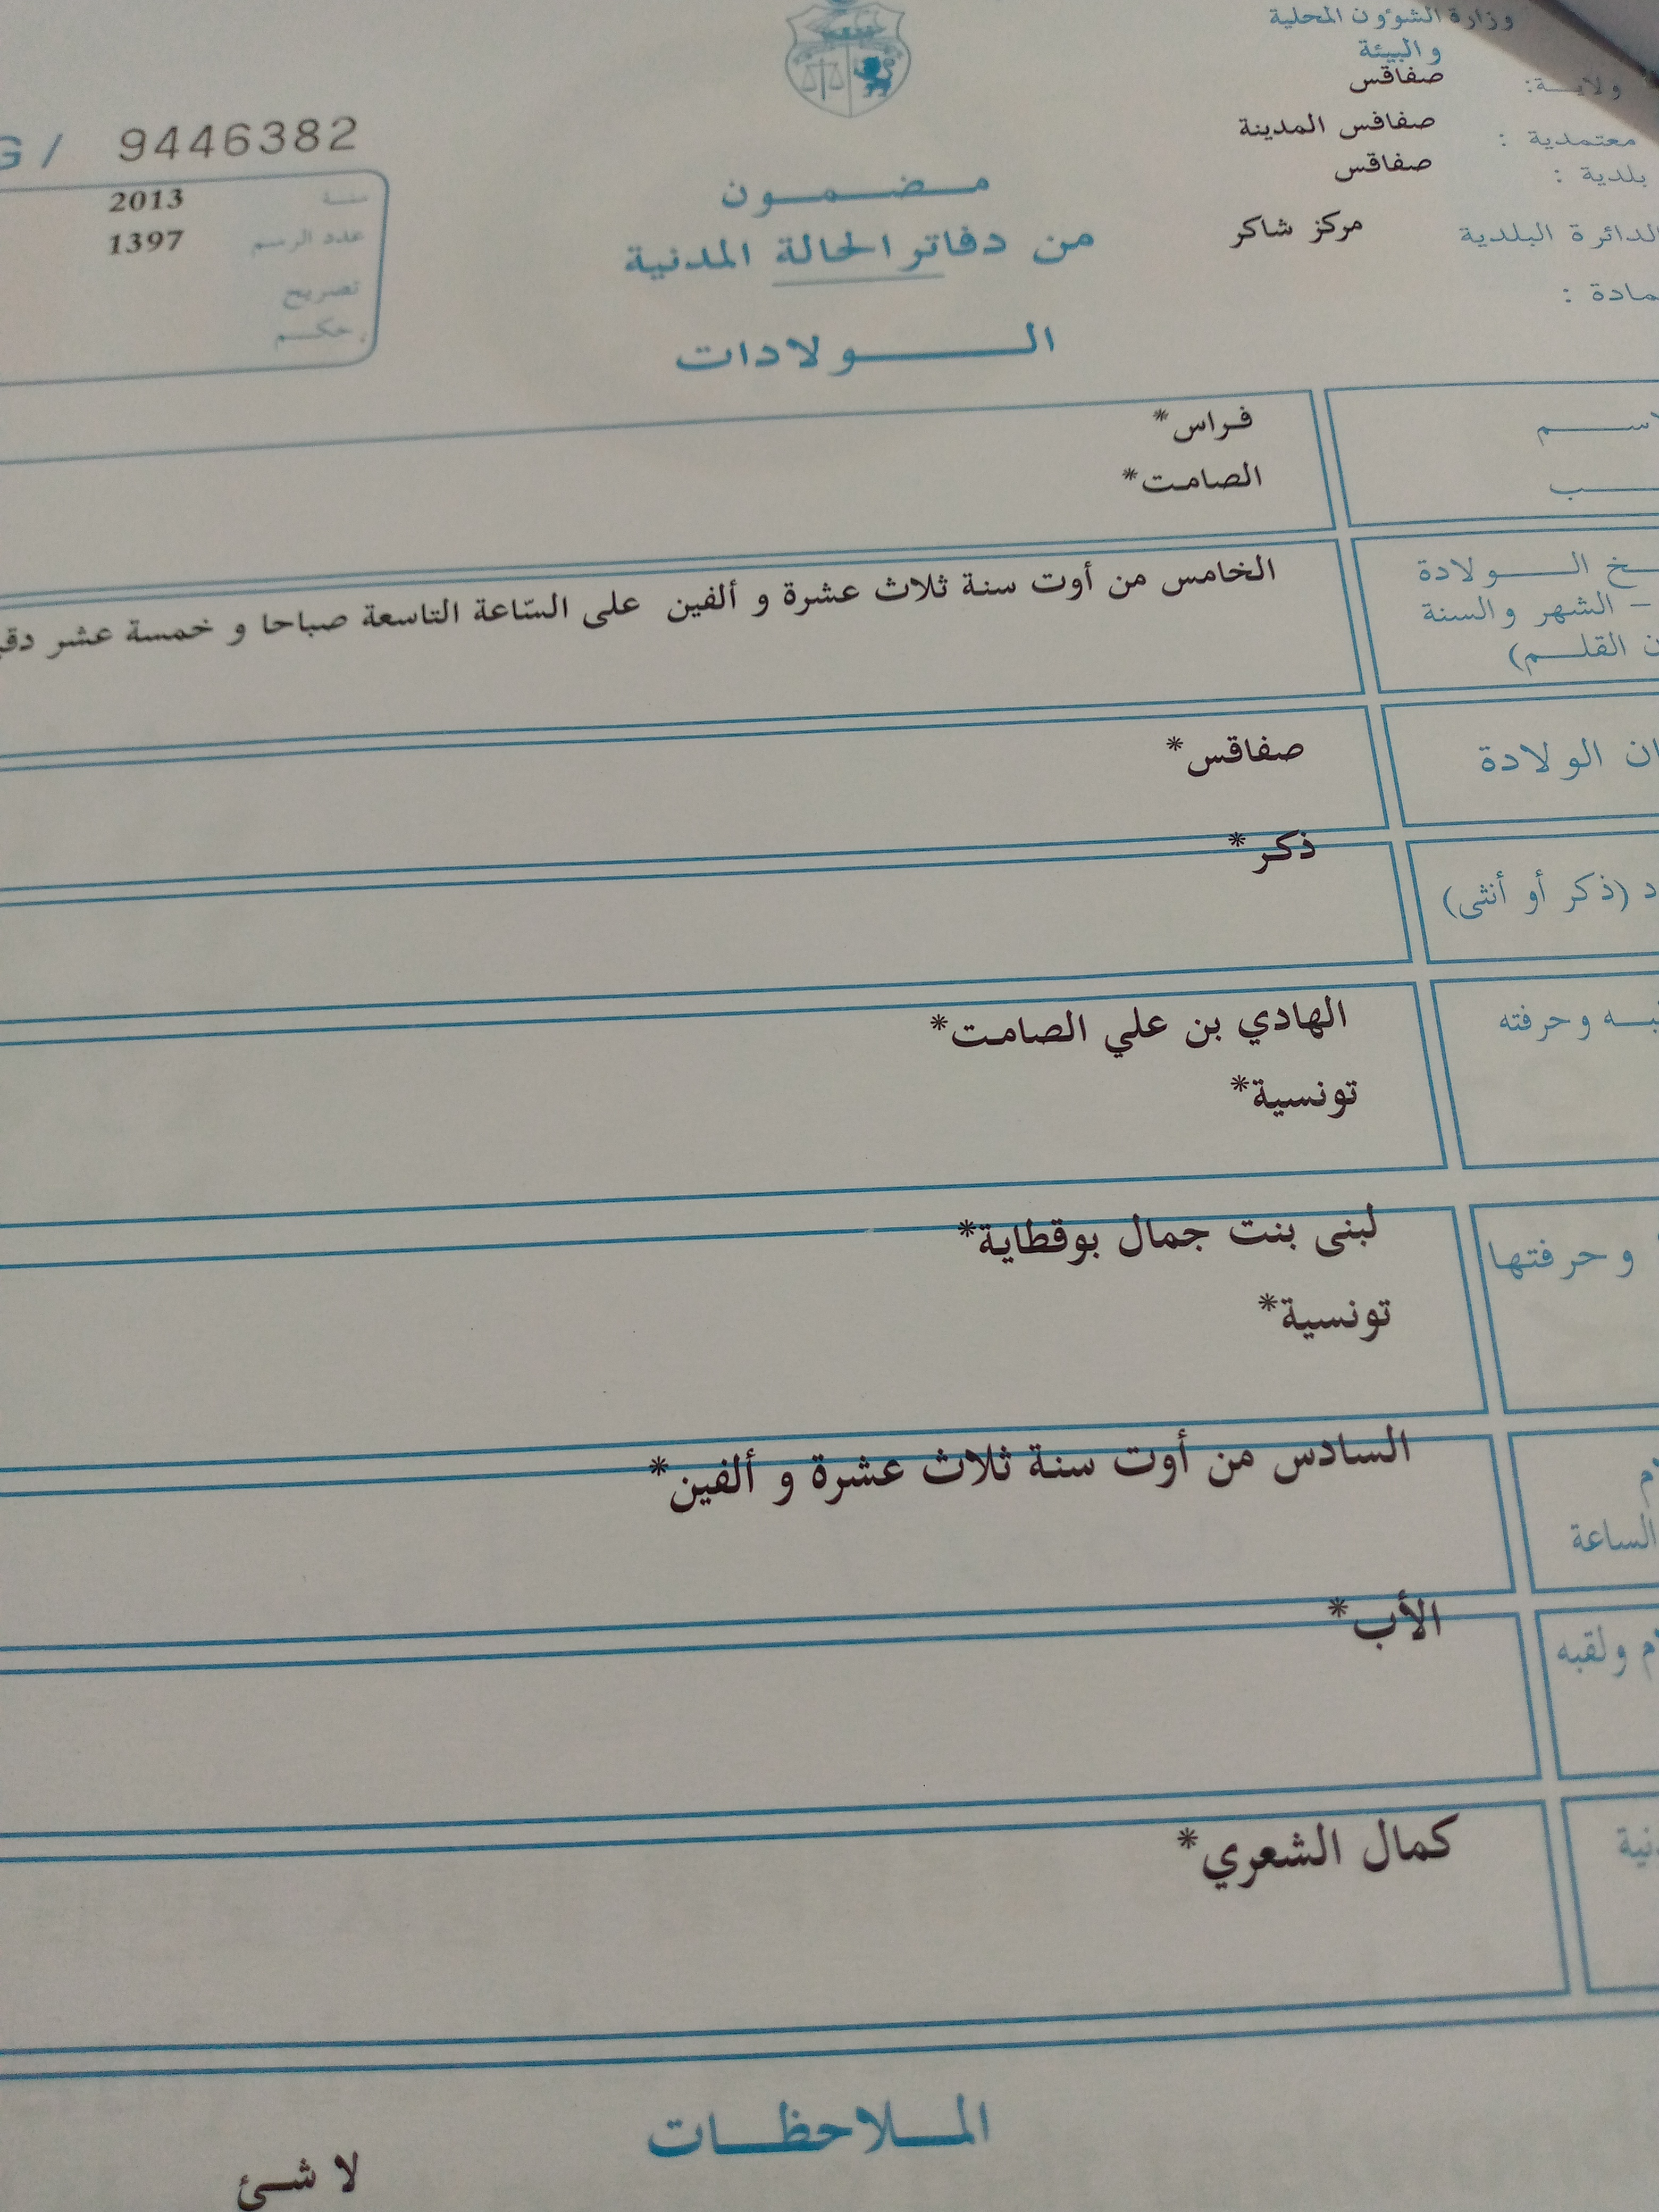 وزارة الشؤون المحلية
والبيئة
ولاية: صفاقس
معتمدية : صفاقس المدينة
بلدية : صفاقس
الدائرة البلدية مركز شاكر
G / 9446382
سنة 2013
عدد الرسم 1397
تصريح
حكم
مضمون
من دفاتر الحالة المدنية
الولادات
فراس*
الصامت*
الولادة
الخامس من أوت سنة ثلاث عشرة و ألفين على السّاعة التاسعة صباحا و خمسة عشر
– الشهر والسنة
القلم)
الولادة صفاقس*
(ذكر أو أنثى) ذكر*
وحرفته الهادي بن علي الصامت*
تونسية*
وحرفتها لبنى بنت جمال بوقطاية*
تونسية*
السادس من أوت سنة ثلاث عشرة و ألفين*
الساعة
ولقبه الأب*
كمال الشعري*
الملاحظات
لا شئ